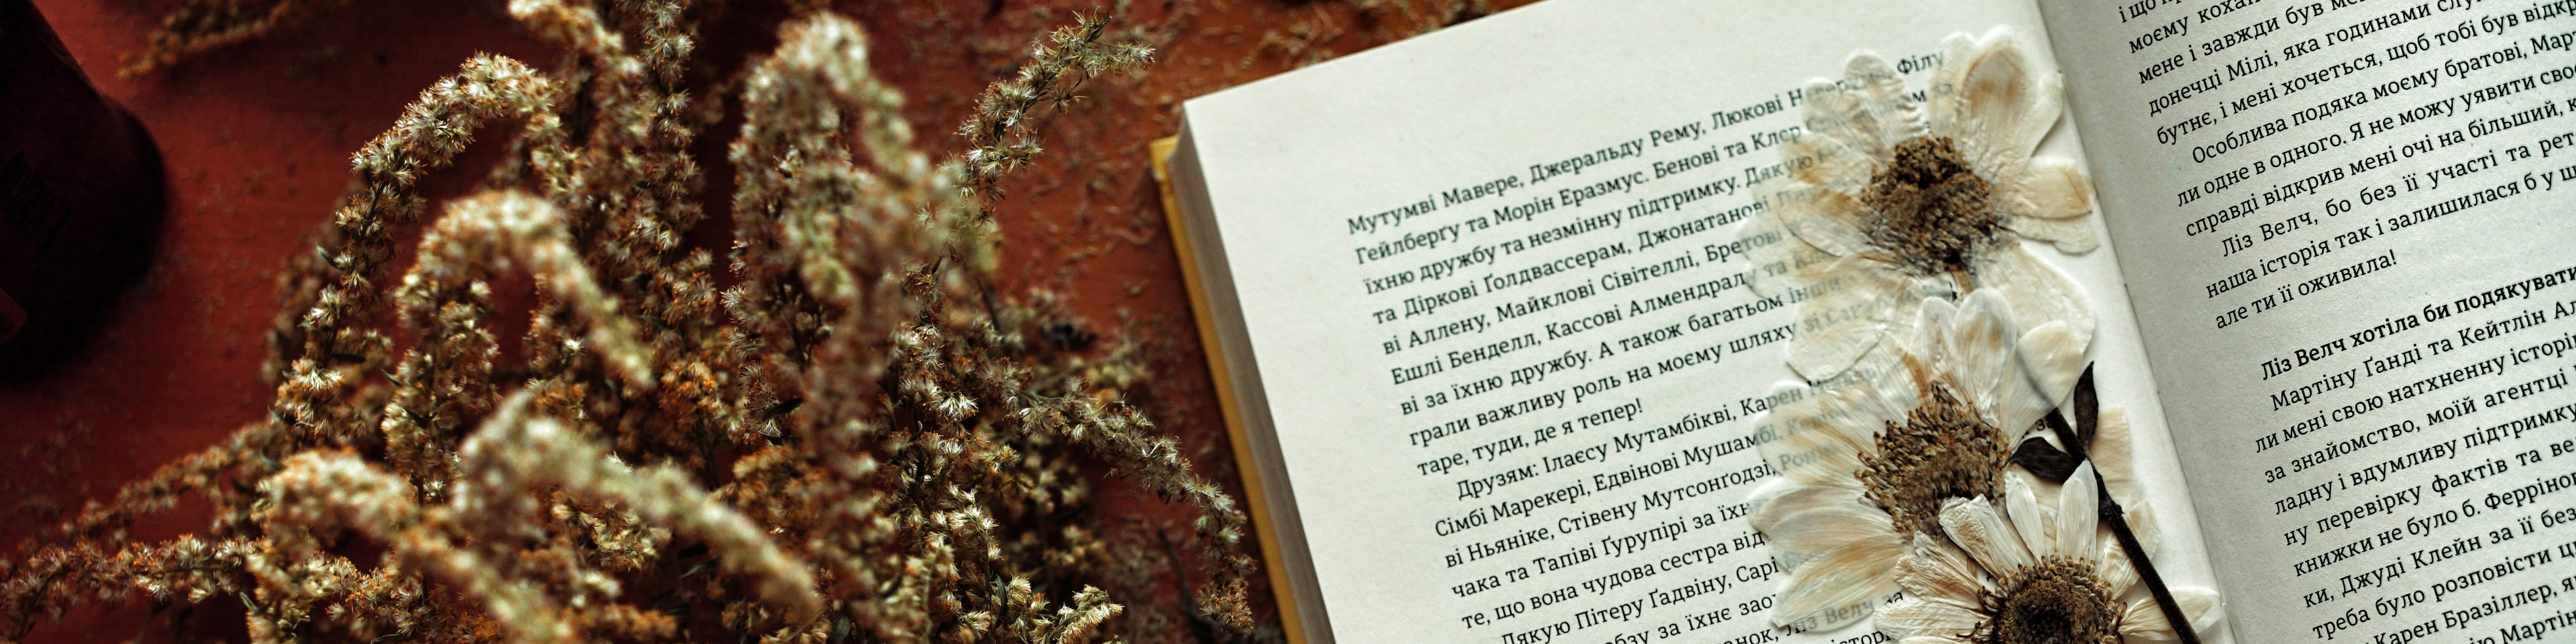 Мутумві Мавере, Джеральду Рему, Люкові Філу
Гейлбергу та Морін Еразмус. Бенові та Клер
їхню дружбу та незмінну підтримку. Дякую
та Діркові Ґолдвассерам, Джонатанові
ві Аллену, Майклові Сівітеллі, Бретові
Ешлі Бенделл, Кассові Алмендрал та
ві за їхню дружбу. А також багатьом
грали важливу роль на моєму шляху зі
таре, туди, де я тепер!
Друзям: Ілаєсу Мутамбікві, Карен
Сімбі Марекері, Едвінові Мушамбі,
ві Ньяніке, Стівену Мутсонгодзі,
чака та Тапіві Ґурупірі за їхн
те, що вона чудова сестра від
Дякую Пітеру Ґадвіну, Сарі
за їхнє
Ліз Велч, за
і що
моєму кохан
мене і завжди був
донечці Мілі, яка годинами
бутнє, і мені хочеться, щоб тобі був відкр
Особлива подяка моєму братові, Мар
ли одне в одного. Я не можу уявити сво
справді відкрив мені очі на більший,
Ліз Велч, бо без її участі та рет
наша історія так і залишилася б у
але ти її оживила!
Ліз Велч хотіла би подякувати
Мартіну Ґанді та Кейтлін
ли мені свою натхненну історі
за знайомство, моїй агентці
ладну і вдумливу підтримку
ну перевірку фактів та ве
книжки не було б. Феррінов
ки, Джуді Клейн за її без
треба було розповісти
Карен Бразіллер,
Мартін